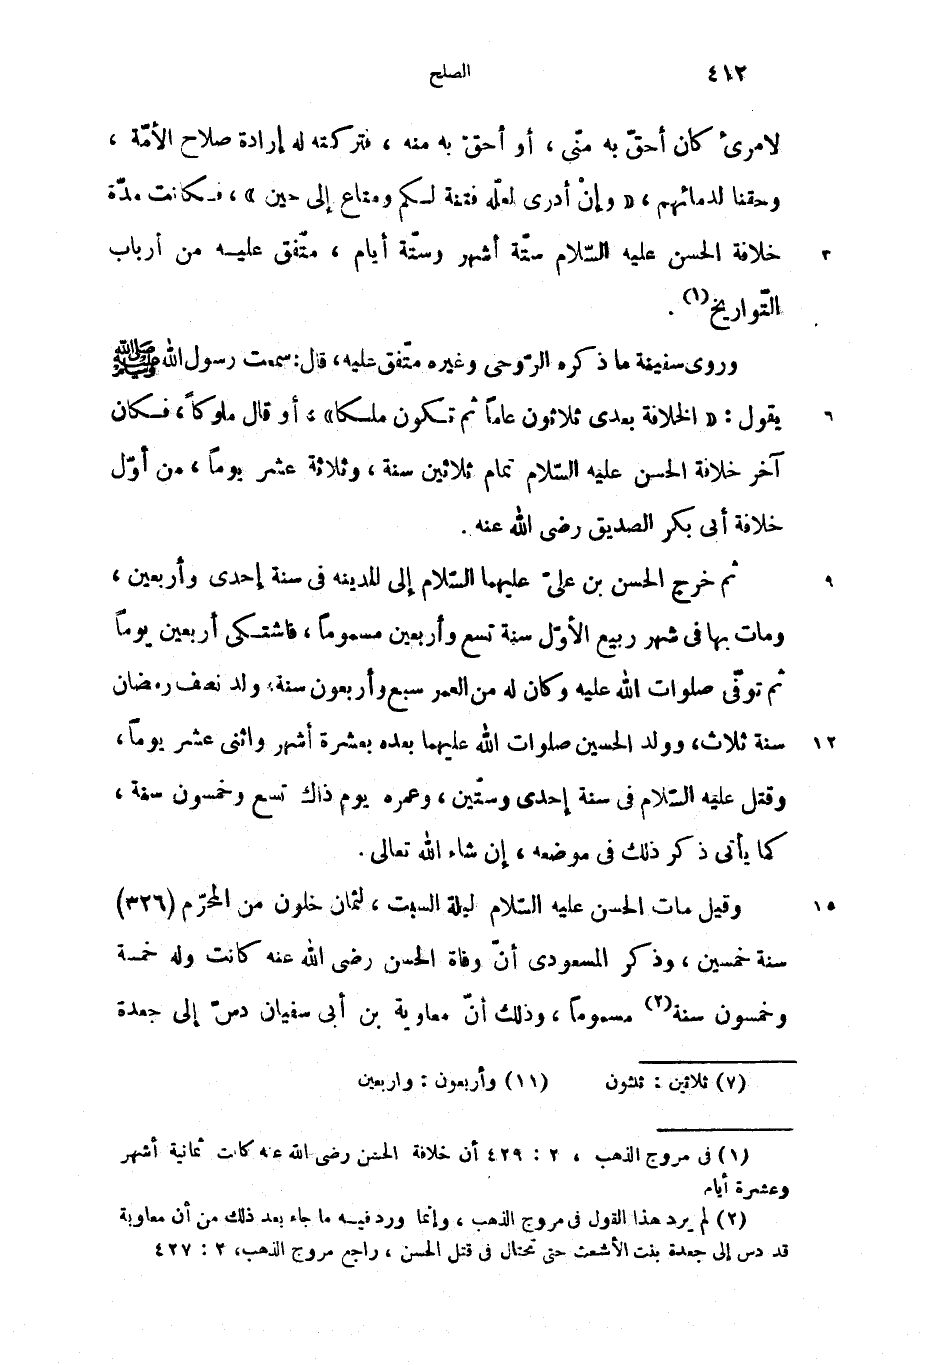 ٤١٢ الصلح
لامرئ كان أحقّ به منّى ، أو أحق به منه ، فتركته له إرادة صلاح الأمّة ،
وحقنا لدمائهم ، « وإنْ أدرى لعلّه فتنة لكم ومتاع إلى حين » ، فكانت مدّة
٣ خلافة الحسن عليه السّلام ستّة أشهر وستّة أيام ، متّفق عليه من أرباب
التّواريخ(١) .
وروى سفينة ما ذكره الرّوحى وغيره متّفق عليه، قال: سمعت رسول الله ﷺ
٦ يقول : « الخلافة بعدى ثلاثون عاماً ثم تكون ملكا» ؛ أو قال ملوكاً ، فكان
آخر خلافة الحسن عليه السّلام تمام ثلاثين سنة ، وثلاثة عشر يوماً ، من أوّل
خلافة أبى بكر الصديق رضى الله عنه .
٩ ثم خرج الحسن بن علىّ عليهما السّلام إلى المدينه فى سنة إحدى وأربعين ،
ومات بها فى شهر ربيع الأوّل سنة تسع وأربعين مسموماً ، فاشتكى أربعين يوماً
ثم توفّى صلوات الله عليه وكان له من العمر سبع وأربعون سنة، ولد نصف رمضان
١٢ سنة ثلاث، وولد الحسين صلوات الله عليهما بعده بعشرة أشهر واثنى عشر يوماً ،
وقتل عليه السّلام فى سنة إحدى وستّين ، وعمره يوم ذاك تسع وخمسون سنة ،
كما يأتى ذكر ذلك فى موضعه ، إن شاء الله تعالى .
١٥ وقيل مات الحسن عليه السّلام ليلة السبت ، لثمان خلون من المحرّم (٣٢٦)
سنة خمسين ، وذكر المسعودى أنّ وفاة الحسن رضى الله عنه كانت وله خمسة
وخمسون سنة(٢) مسموماً ، وذلك أنّ معاوية بن أبى سفيان دسّ إلى جعدة
(٧) ثلاثين : ثلثون (١١) وأربعون : واربعين
(١) فى مروج الذهب ، ٢ : ٤٢٩ أن خلافة الحسن رضى الله عنه كانت ثمانية أشهر
وعشرة أيام
(٢) لم يرد هذا القول فى مروج الذهب ، وإنما ورد فيه ما جاء بعد ذلك من أن معاوية
قد دس إلى جعدة بنت الأشعث حتى تحتال فى قتل الحسن ، راجع مروج الذهب، ٢ : ٤٢٧